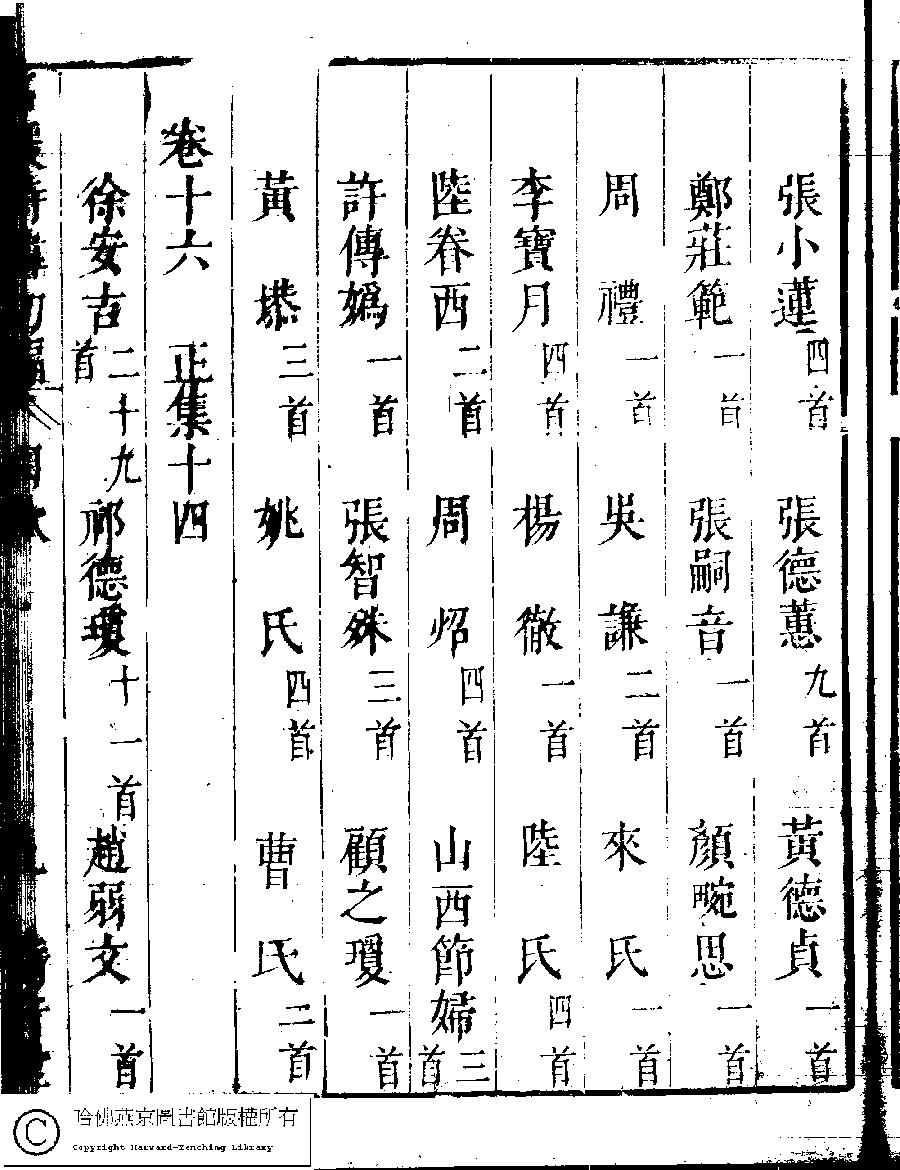 張小蓮 四首 張德蕙 九首 黃德貞 一首
鄭莊範 一首 張嗣音 一首 顏畹思 一首
周禮 一首 吳謙 二首 來氏 一首
李寶月 四首 楊徹 一首 陸氏 四首
陸眷西 二首 周炤 四首 山西節婦 三首
許傳嬀 一首 張智殊 三首 顧之瓊 一首
黃塨 三首 姚氏 四首 曹氏 二首
卷十六 正集十四
徐安吉 二十九首 祁德瓊 十一首 趙弱文 一首
哈佛燕京圖書館版權所有
Copyright Harvard-Yenching Library